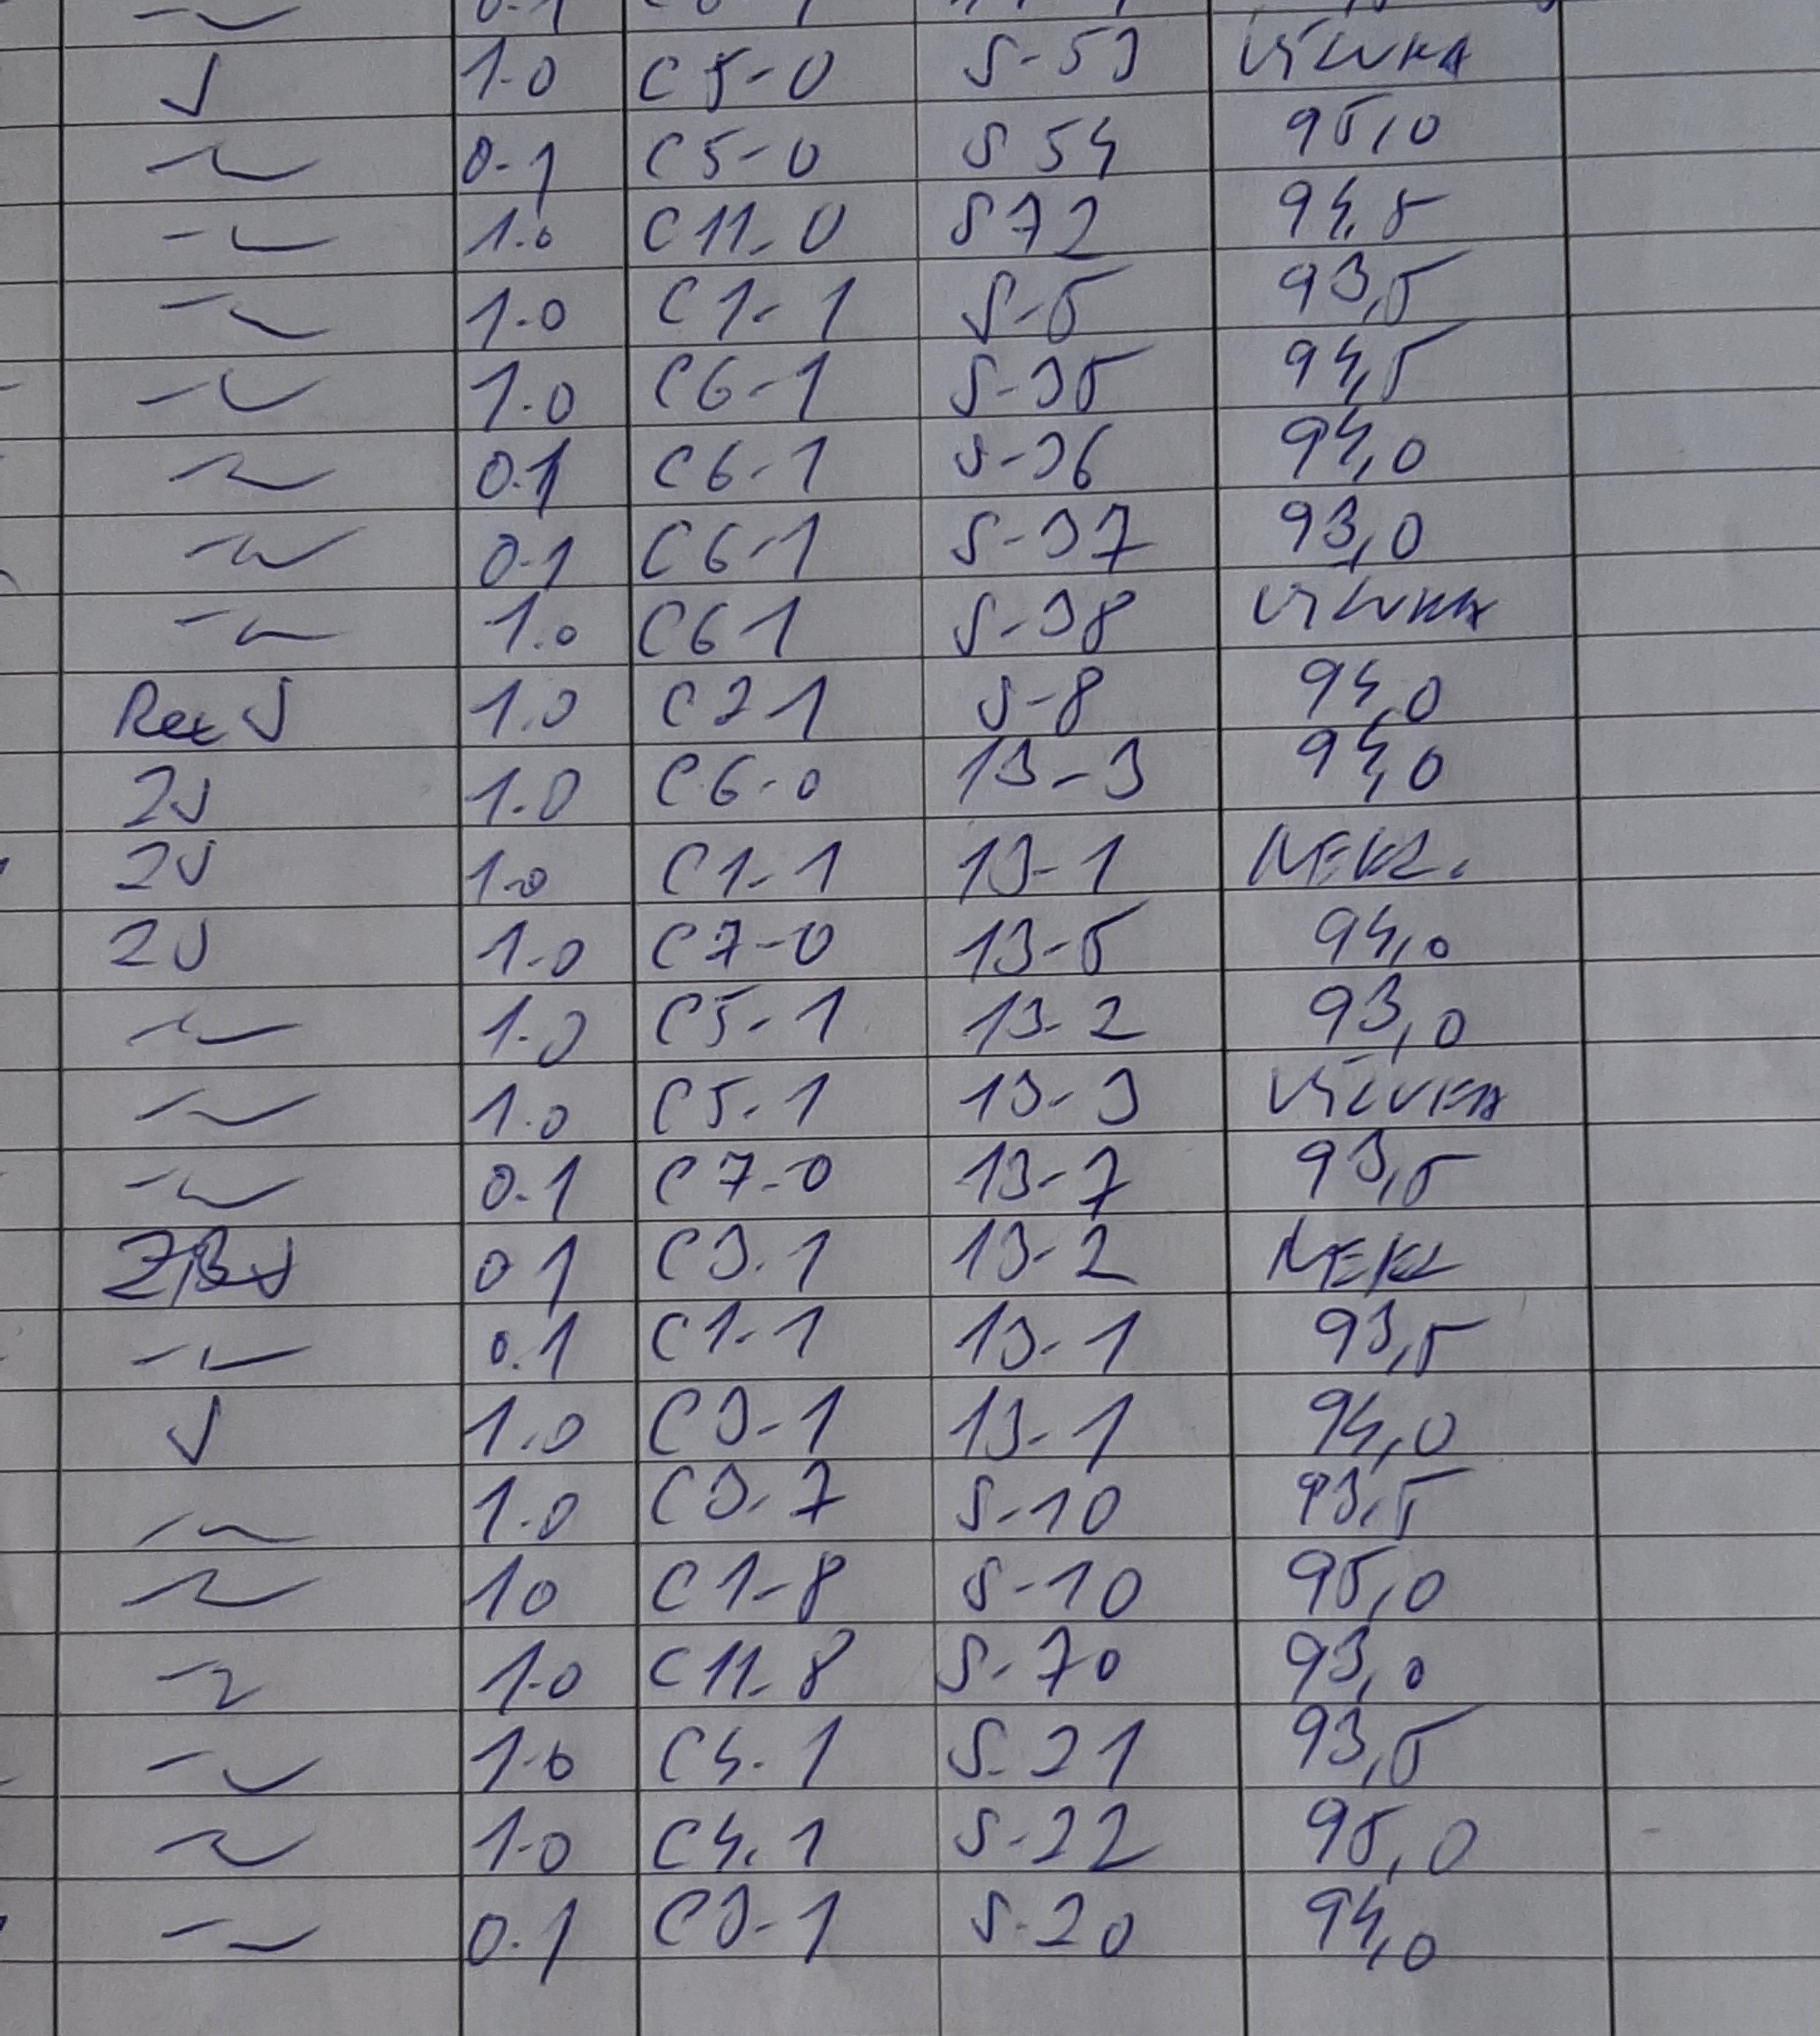 J 1.0 C5-0 S-53 VÝLUKA
-"- 0.1 C5-0 S 54 95,0
-"- 1.0 C11-0 S72 94,5
-"- 1.0 C1-1 S-5 93,5
-"- 1.0 C6-1 S-35 94,5
-"- 0.1 C6-1 S-36 94,0
-"- 0.1 C6-1 S-37 93,0
-"- 1.0 C6 1 S-38 VÝLUKA
Rex J 1.0 C2 1 S-8 94,0
2J 1.0 C6-0 13-3 94,0
2J 1.0 C1-1 13-1 NEKL.
2J 1.0 C7-0 13-5 94,0
-"- 1.0 C5-1 13-2 93,0
-"- 1.0 C5-1 13-3 VÝLUKA
-"- 0.1 C7-0 13-7 93,5
0 1 C3.1 13-2 NEKL
-"- 0.1 C1-1 13-1 93,5
J 1.0 C3-1 13-1 94,0
-"- 1.0 C3-7 S-10 93,5
-"- 10 C1-8 S-10 95,0
-"- 1.0 C11-8 S-70 93,0
-"- 1.0 C4-1 S-21 93,5
-"- 1.0 C4.1 S-22 95,0
-"- 0.1 C3-1 S-20 94,0